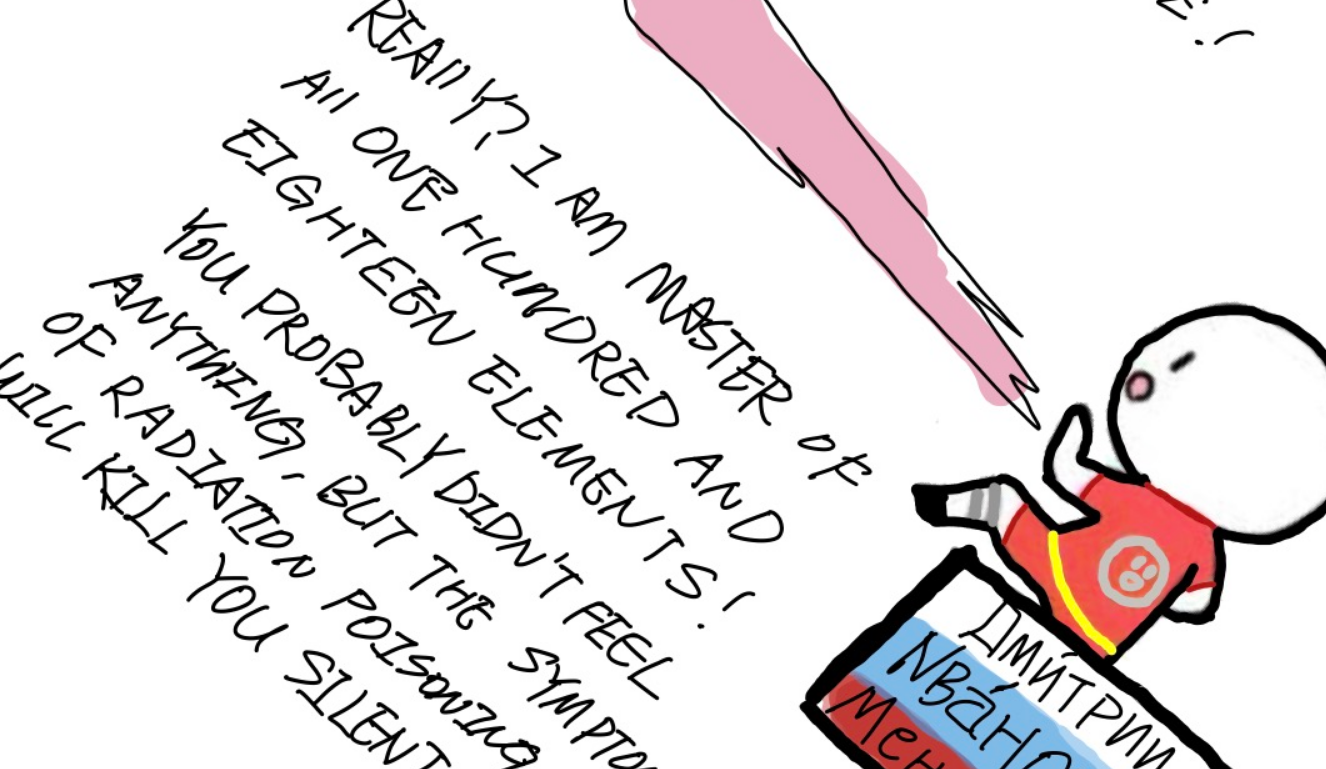 E!
REAllY? I AM MASTER OF
All ONE HUNDRED AND
EIGHTEEN ELEMENTS!
YOU PROBABLY DIDN'T FEEL
ANYTHING, BUT THE SYMPTO
OF RADIATION POISONING
WILL KILL YOU SILENT
Дми́трий
Ива́но
Мен